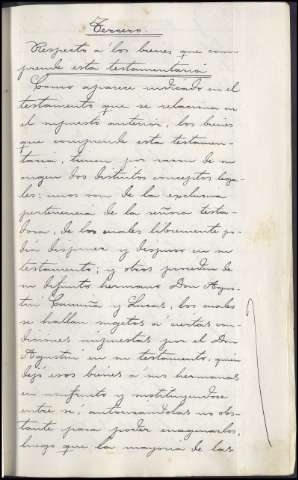 Tercero.
Respecto á los bienes que com-
prende esta testamentaría
Como aparece indicado en el
testamento que se relaciona en
el supuesto anterior, los bienes
que comprende esta testamen-
taría, tienen por razon de su
origen dos distintos conceptos lega-
les; unos son de la exclusiva
pertenencia de la señora testa-
dora, de los cuales libremente po-
día disponer y dispuso en su
testamento; y otros proceden de
su difunto hermano Don Agus-
tín y los cuales
se hallan sugetos á ciertas con-
diciones impuestas por el Don
Agustín en su testamento, quien
dejó esos bienes á sus hermanas
en usufructo y sustituyendose
entre sí, autorizandolas no obs-
tante para poder enagenarlos,
luego que la mayoría de las